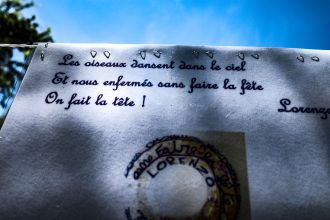 Les oiseaux dansent dans le ciel
Et nous enfermés sans faire la fête
On fait la tête !
LORENZO